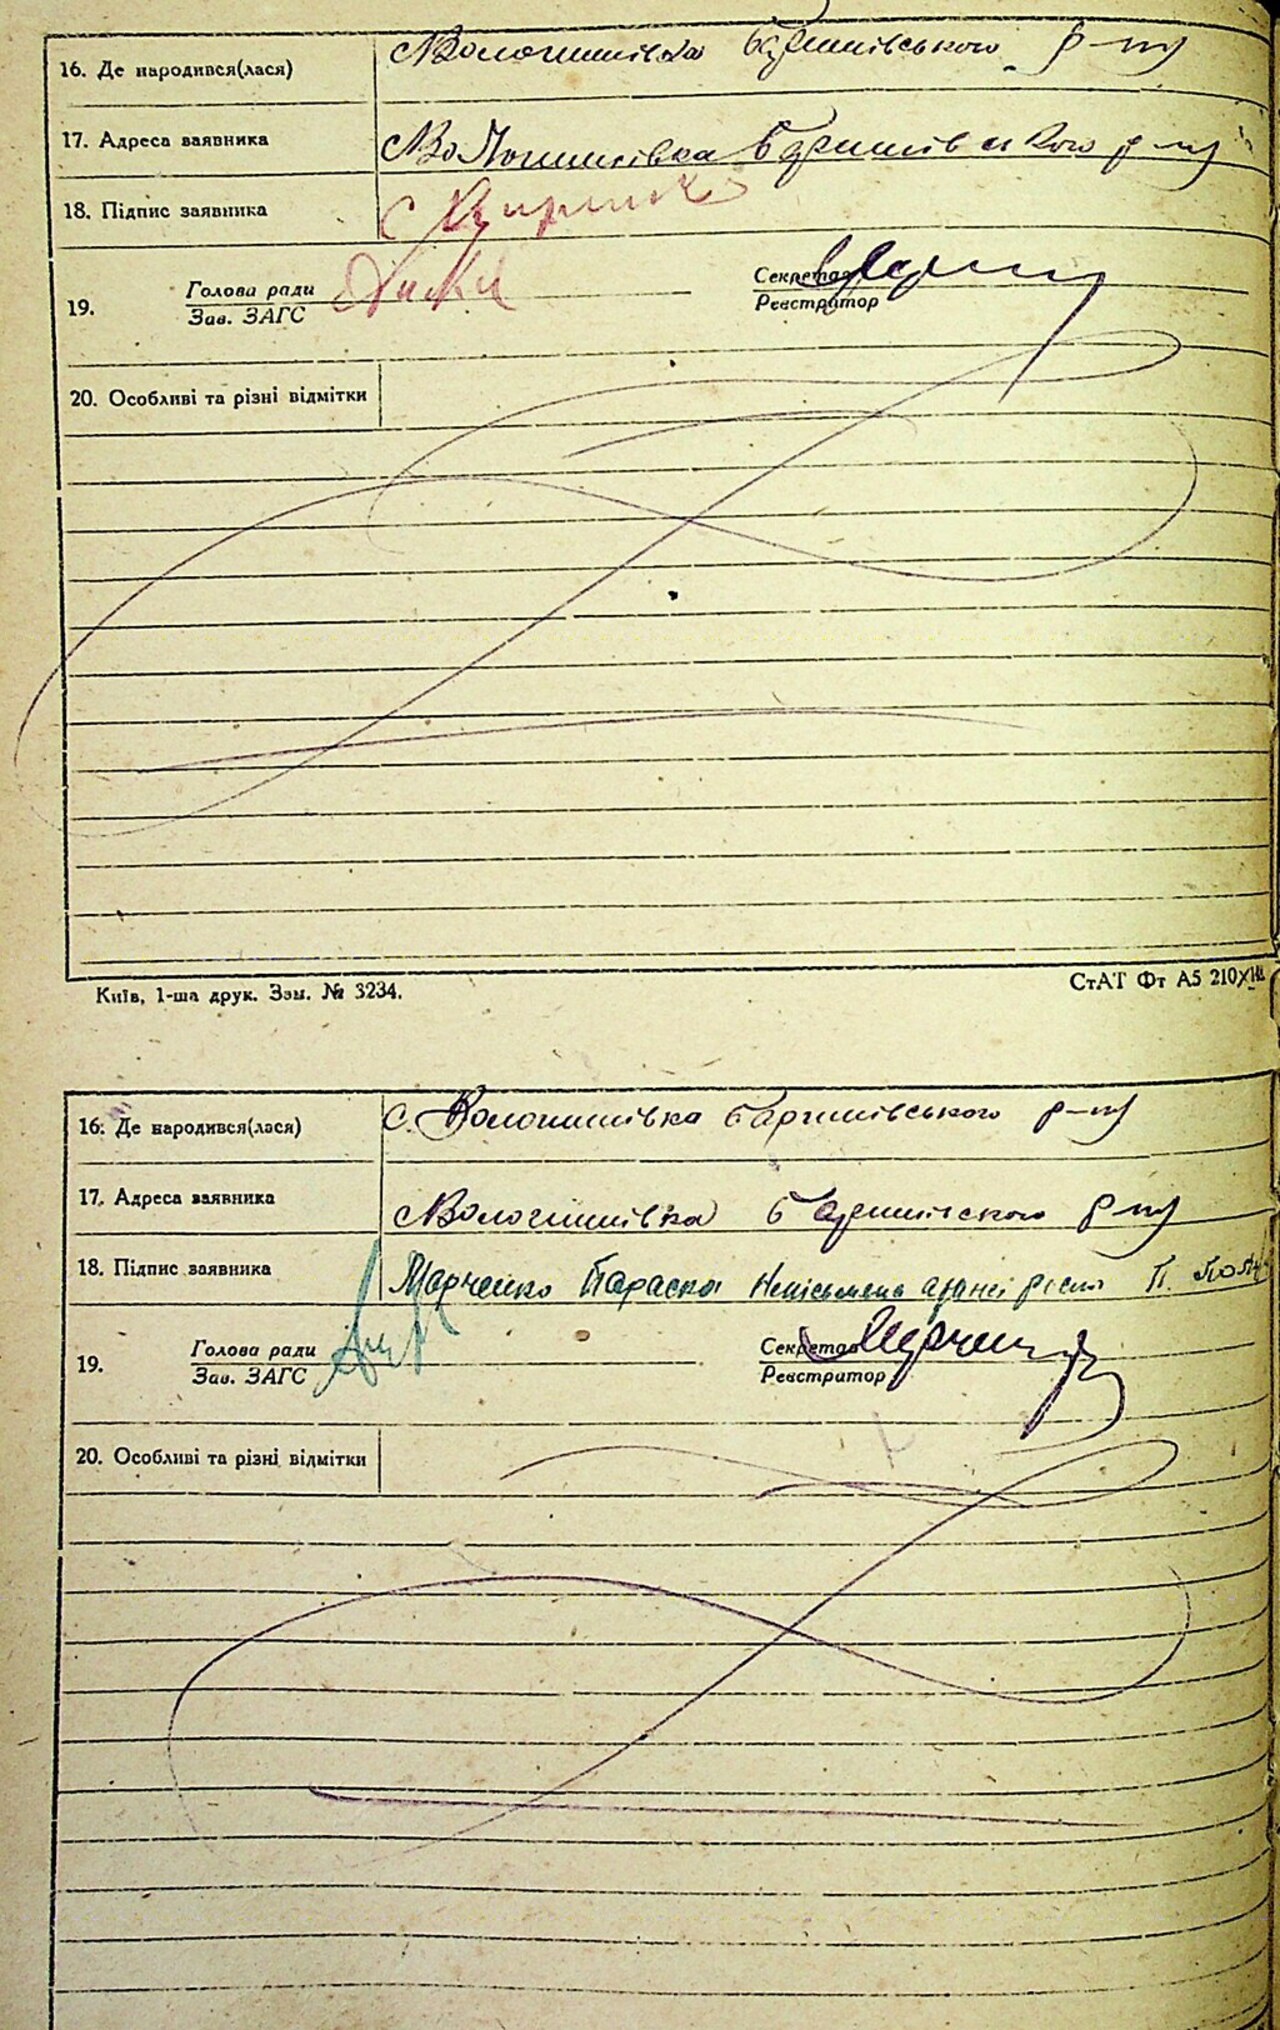 16. Де народився(лася) с. Волошинівка Баришівського р-ну
17. Адреса заявника с. Волошинівка Баришівського р-ну
18. Підпис заявника
19. Голова ради Секретар
Зав. ЗАГС Реєстратор
20. Особливі та різні відмітки
Київ, 1-ша друк. Зам. № 3234. СтАТ Фт А5 210Х
16. Де народився(лася) с. Волошинівка Баришівського р-ну
17. Адреса заявника с. Волошинівка р-ну
18. Підпис заявника Марченко Параска
19. Голова ради Секретар Марченко
Зав. ЗАГС Реєстратор
20. Особливі та різні відмітки